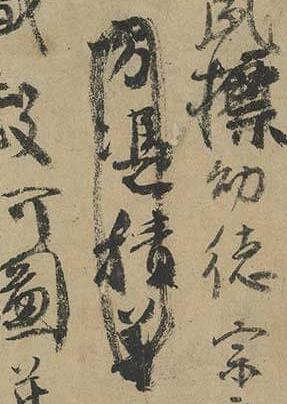 夙標幼德宗
方憑積善
戩穀何圖逆